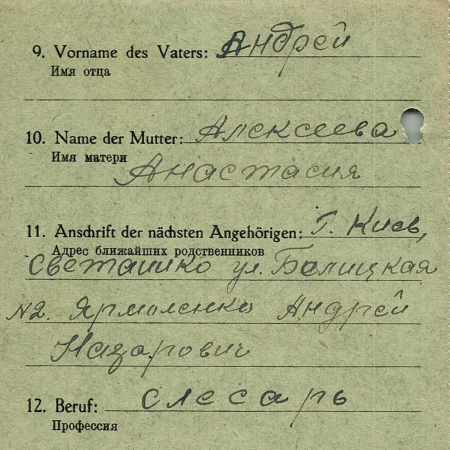 9. Vorname des Vaters: Андрей
Имя отца
10. Name der Mutter: Алексеева
Имя матери
Анастасия
11. Anschrift der nächsten Angehörigen: Г. Киев,
Адрес ближайших родственников
Светашко ул. Белицкая
N2. Ярмоленко Андрей
Назарович
12. Beruf: слесарь
Профессия